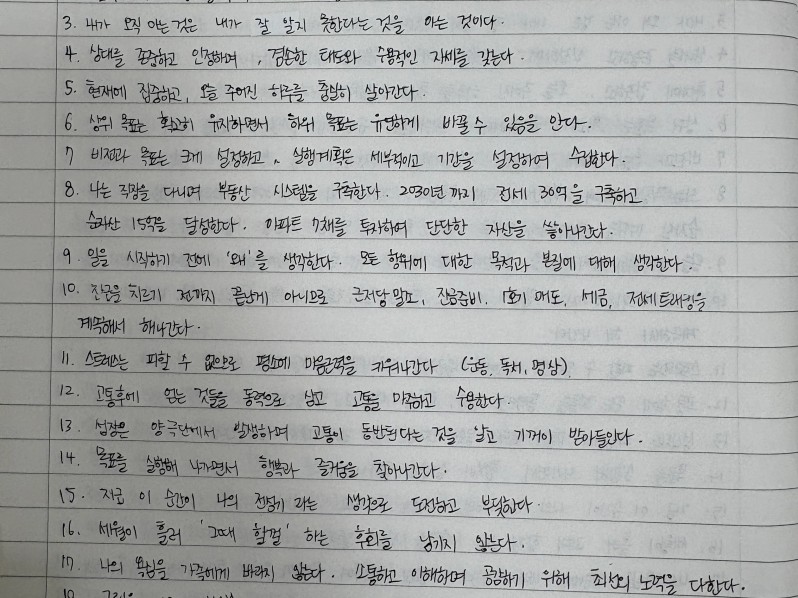 3. 내가 오직 아는것은 내가 잘 알지 못한다는 것을 아는 것이다.
4. 상대를 존중하고 인정하며, 겸손한 태도와 수용적인 자세를 갖는다.
5. 현재에 집중하고, 오늘 주어진 하루를 충실히 살아간다.
6. 상위 목표는 확고히 유지하면서 하위 목표는 유연하게 바꿀 수 있음을 안다.
7 비전과 목표는 크게 설정하고, 실행계획은 세부적이고 기간을 설정하여 수립한다.
8. 나는 직장을 다니며 부동산 시스템을 구축한다. 2030년까지 전세 30억을 구축하고
순자산 15억을 달성한다. 아파트 7채를 투자하여 단단한 자산을 쌓아나간다.
9. 일을 시작하기 전에 '왜'를 생각한다. 모든 행위에 대한 목적과 본질에 대해 생각한다.
10. 잔금을 치르기 전까지 끝난게 아니므로 근저당말소, 잔금준비, 1호기 매도, 세금, 전세트래킹을
계속해서 해나간다.
11. 스트레스는 피할 수 없으므로 평소에 마음근력을 키워나간다 (운동, 독서, 명상)
12. 고통후에 얻는 것들을 동력으로 삼고 고통을 마주하고 수용한다.
13. 성장은 양극단에서 발생하며 고통이 동반된다는 것을 알고 기꺼이 받아들인다.
14. 목표를 실행해 나가면서 행복과 즐거움을 찾아나간다.
15. 지금 이 순간이 나의 전성기 라는 생각으로 도전하고 부딪힌다.
16. 세월이 흘러 '그때 할걸' 하는 후회를 남기지 않는다.
17. 나의 욕심을 가족에게 바라지 않는다. 소통하고 이해하며 공감하기 위해 최선의 노력을 다한다.